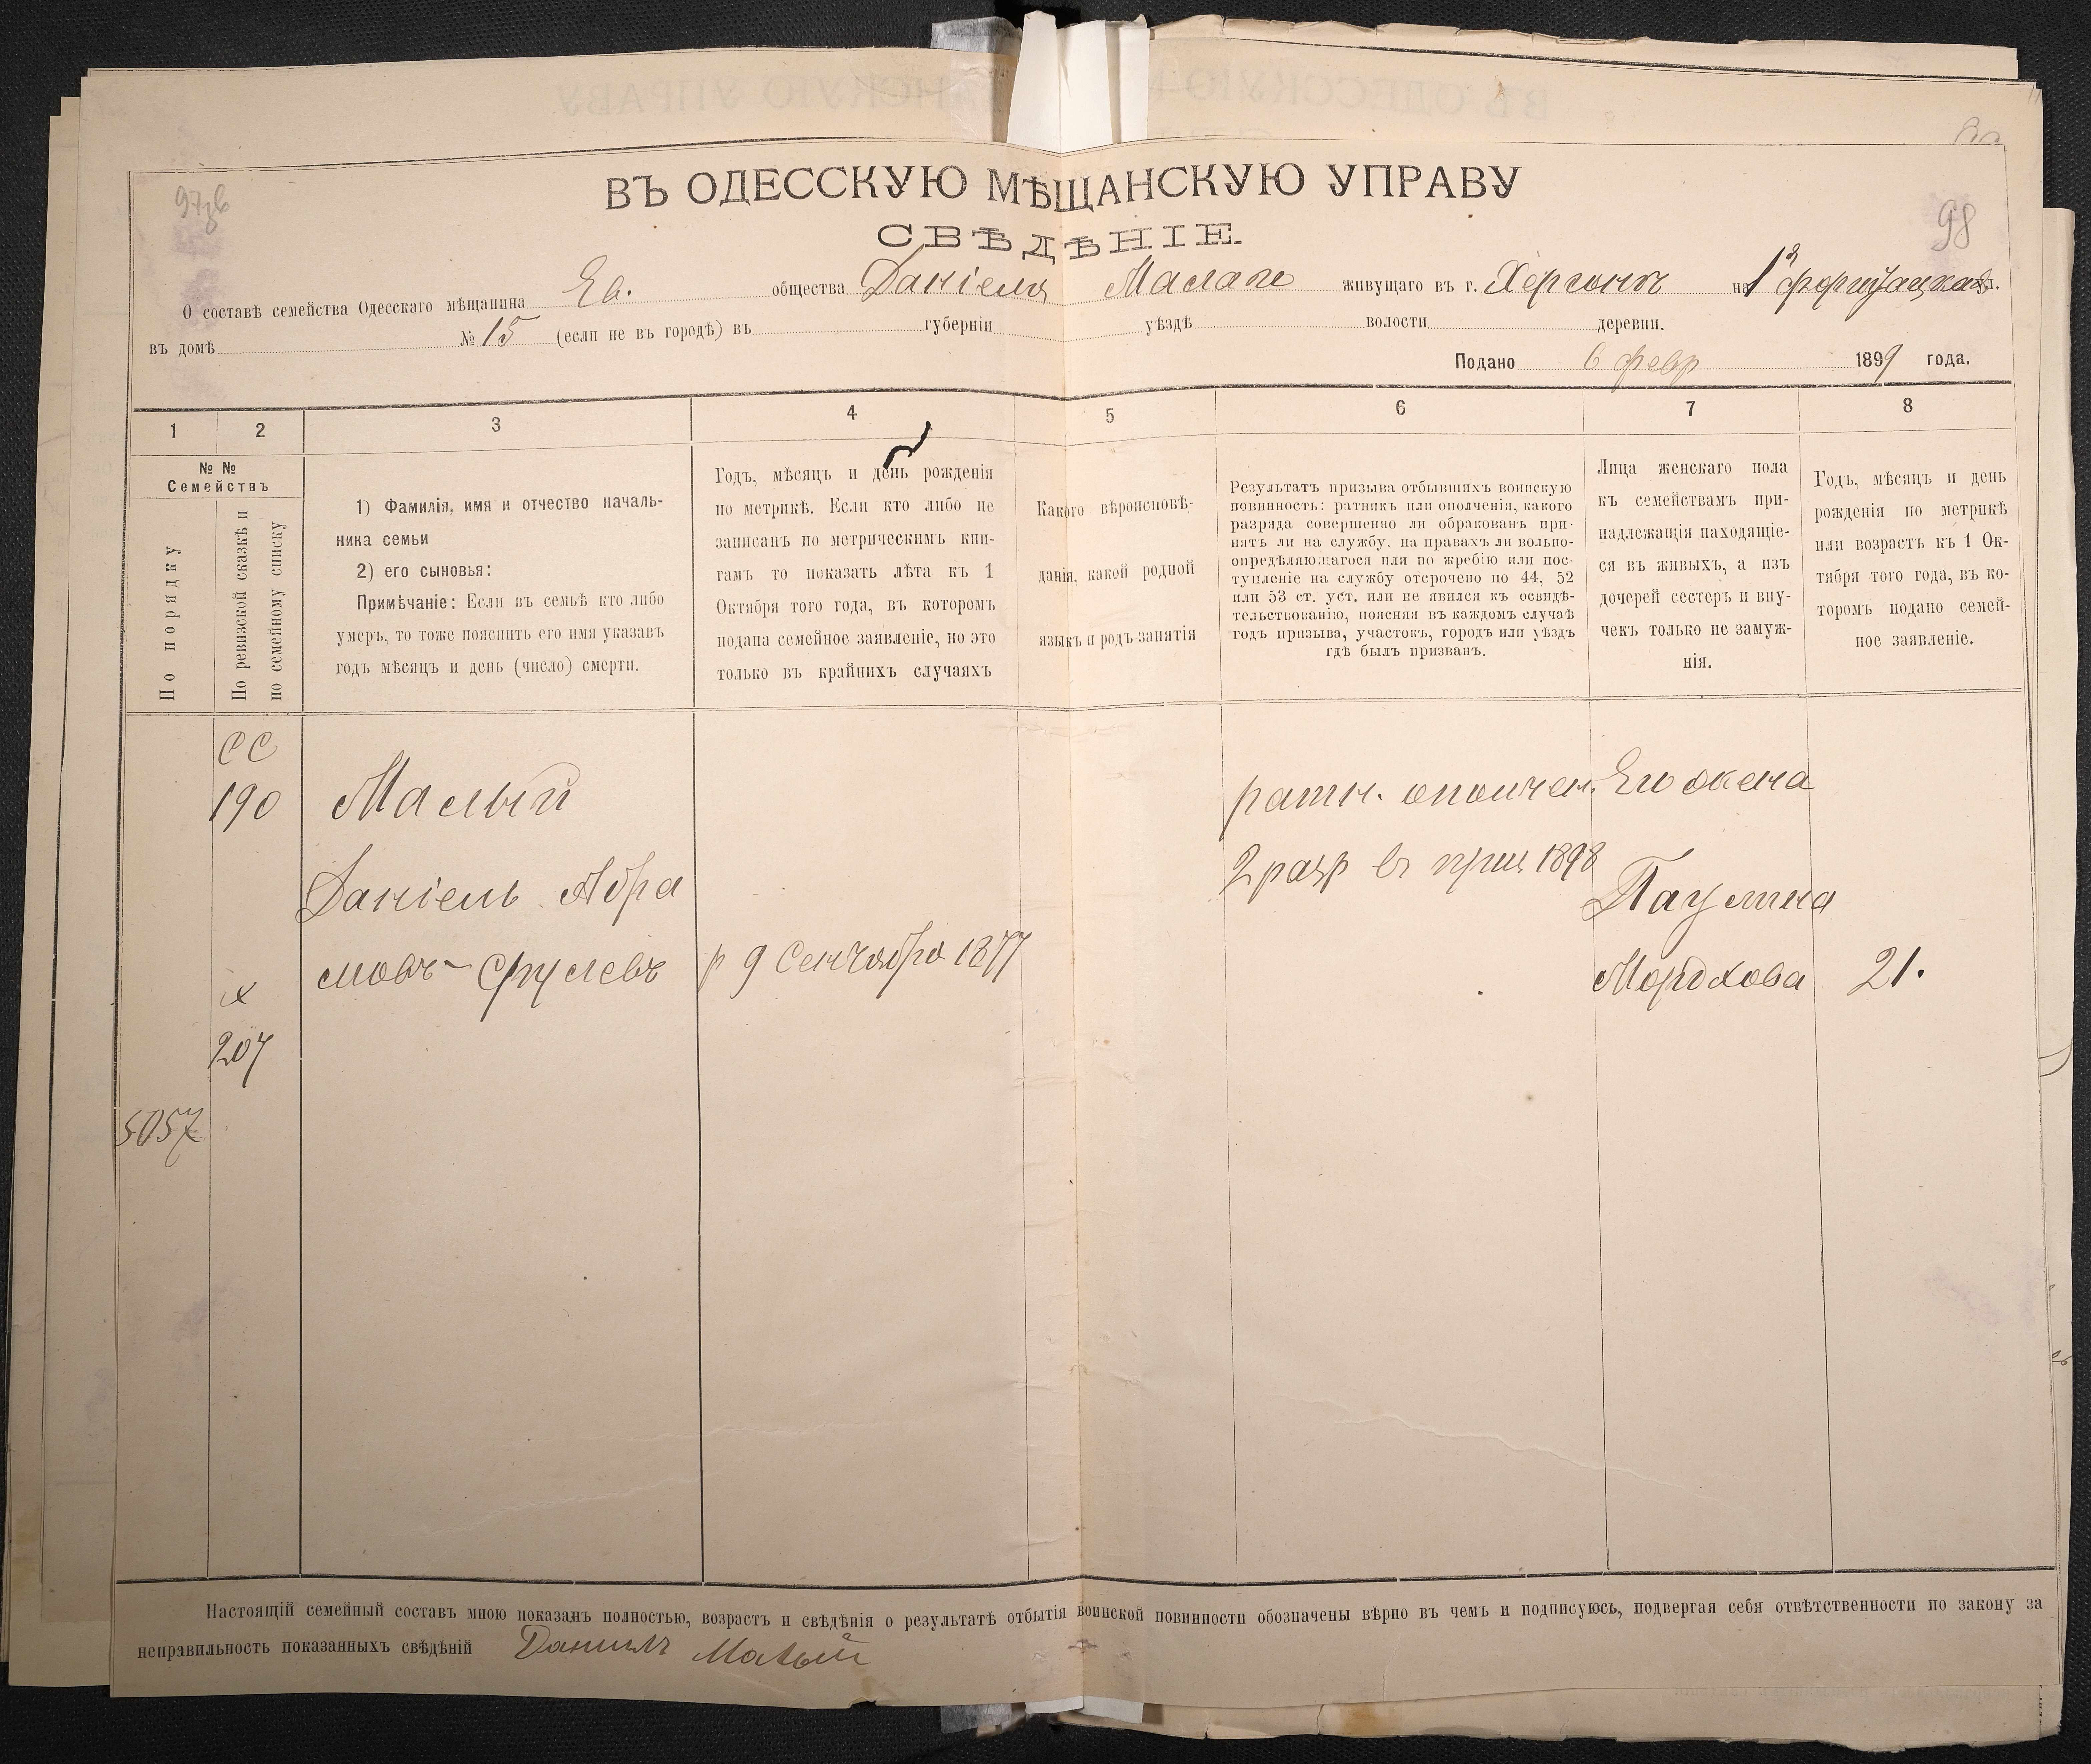 97об
98
ВЪ ОДЕССКУЮ МѢЩАНСКУЮ УПРАВУ
СВѢДѢНІЕ.
О составѣ семейства Одесскаго мѣщанина Ев. общества Даніеля Малаго живущаго въ г. Херсонѣ на 1й форштадской ул.
въ домѣ № 15 (если не въ городѣ) въ губерніи уѣздѣ волости деревни.
Подано 6 февр 1899 года.
1 2 3 4 5 6 7 8
№ №
Семействъ
По порядку
По ревизской сказкѣ и
по семейному списку
1) Фамилія, имя и отчество началь-
ника семьи
2) его сыновья:
Примѣчаніе: Если въ семьѣ кто либо
умеръ, то тоже пояснить его имя указавъ
годъ мѣсяцъ и день (число) смерти.
Годъ, мѣсяцъ и день рожденія
по метрикѣ. Если кто либо не
записанъ по метрическимъ кни-
гамъ то показать лѣта къ 1
Октября того года, въ которомъ
подана семейное заявленіе, но это
только въ крайнихъ случаяхъ
Какого вѣроисповѣ-
данія, какой родной
языкъ и родъ занятія
Результатъ призыва отбывшихъ воинскую
повинность: ратникъ или ополченія, какого
разряда совершенно ли обракованъ при-
нятъ ли на службу, на правахъ ли вольно-
опредѣляющагося или по жребію или пос-
тупленіе на службу отсрочено по 44, 52
или 53 ст. уст. или не явился къ освидѣ-
тельствованію, поясняя въ каждомъ случаѣ
годъ призыва, участокъ, городъ или уѣздъ
гдѣ былъ призванъ.
Лица женскаго пола
къ семействамъ при-
надлежащія находящіе-
ся въ живыхъ, а изъ
дочерей сестеръ и вну-
чекъ только не замуж-
нія.
Годъ, мѣсяцъ и день
рожденія по метрикѣ
или возрастъ къ 1 Ок-
тября того года, въ ко-
торомъ подано семей-
ное заявленіе.
СС
190
Малый
Даніель Абра
мовъ-Срулевъ
р 9 Сентября 1877
ратн. ополчен.
2 разр въ приз 1898
Его жена
Паулина
Мордкова
21.
х
207
5057
Настоящій семейный составъ мною показанъ полностью, возрастъ и свѣдѣнія о результатѣ отбытія воинской повинности обозначены вѣрно въ чемъ и подписуюсь, подвергая себя отвѣтственности по закону за
неправильность показанныхъ свѣдѣній Данилъ Малый